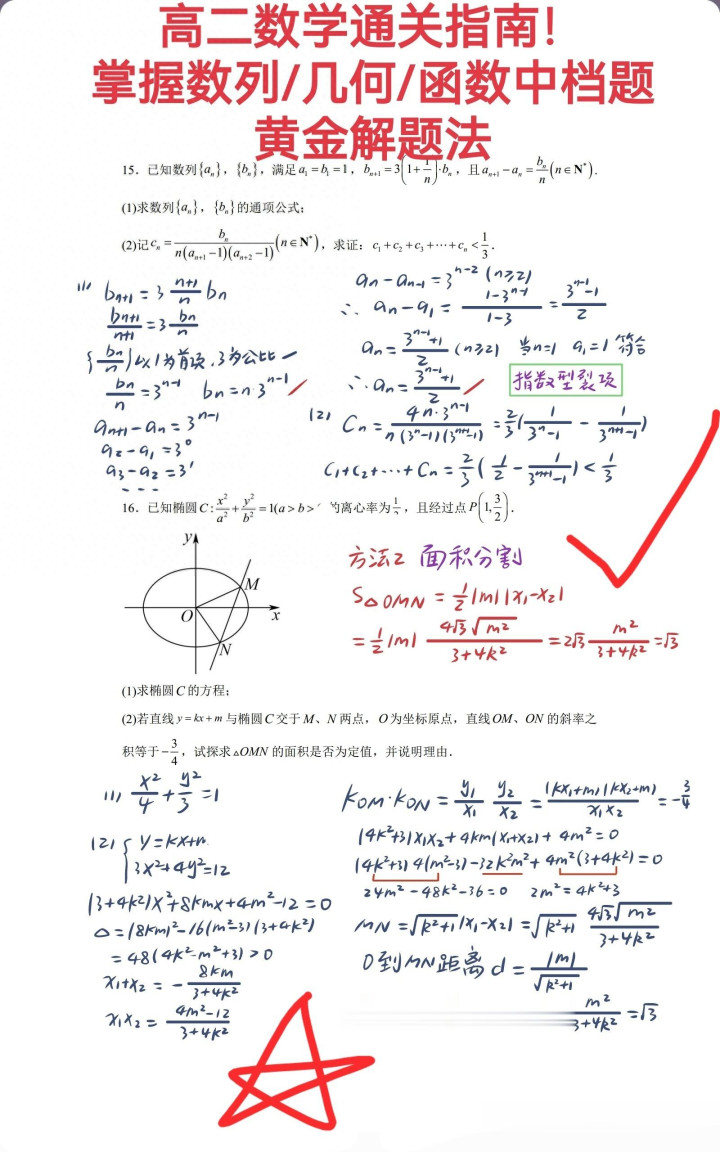 高二数学通关指南！
掌握数列/几何/函数中档题
黄金解题法
15．已知数列{aₙ}，{bₙ}，满足a₁=b₁=1，bₙ₊₁=3(1+1/n)·bₙ，且aₙ₊₁-aₙ=bₙ/n(n∈N*)．
(1)求数列{aₙ}，{bₙ}的通项公式；
(2)记cₙ=bₙ/(n(aₙ₊₁-1)(aₙ₊₂-1))(n∈N*)，求证：c₁+c₂+c₃+⋯+cₙ<1/3．
(1) bₙ₊₁=3 (n+1)/n bₙ
bₙ₊₁/(n+1)=3 bₙ/n
{bₙ/n}以1为首项，3为公比
bₙ/n=3ⁿ⁻¹ bₙ=n·3ⁿ⁻¹
aₙ₊₁-aₙ=3ⁿ⁻¹
a₂-a₁=3⁰
a₃-a₂=3¹
...
aₙ-aₙ₋₁=3ⁿ⁻² (n≥2)
∴ aₙ-a₁=(1-3ⁿ⁻¹)/(1-3)=(3ⁿ⁻¹-1)/2
aₙ=(3ⁿ⁻¹+1)/2 (n≥2) 当n=1 a₁=1 符合
∴ aₙ=(3ⁿ⁻¹+1)/2
指数型裂项
(2) Cₙ=4n·3ⁿ⁻¹/(n(3ⁿ-1)(3ⁿ⁺¹-1))=2/3(1/(3ⁿ-1)-1/(3ⁿ⁺¹-1))
C₁+C₂+⋯+Cₙ=2/3(1/2-1/(3ⁿ⁺¹-1))<1/3
16．已知椭圆C:x²/a²+y²/b²=1(a>b>的离心率为1/，且经过点P(1,3/2)．
y
M
O
x
N
方法2 面积分割
S△OMN=1/2|m||x₁-x₂|
=1/2|m| 4√3√m²/(3+4k²)=2√3 m²/(3+4k²)=√3
(1)求椭圆C的方程；
(2)若直线y=kx+m与椭圆C交于M、N两点，O为坐标原点，直线OM、ON的斜率之
积等于-3/4，试探求△OMN的面积是否为定值，并说明理由．
(1) x²/4+y²/3=1
(2) {y=kx+m
3x²+4y²=12
(3+4k²)x²+8kmx+4m²-12=0
△=(8km)²-16(m²-3)(3+4k²)
=48(4k²-m²+3)>0
x₁+x₂=-8km/(3+4k²)
x₁x₂=(4m²-12)/(3+4k²)
kOM·kON=y₁/x₁ y₂/x₂=(kx₁+m)(kx₂+m)/x₁x₂=-3/4
(4k²+3)x₁x₂+4km(x₁+x₂)+4m²=0
(4k²+3)4(m²-3)-32k²m²+4m²(3+4k²)=0
24m²-48k²-36=0 2m²=4k²+3
MN=√(k²+1)|x₁-x₂|=√(k²+1) 4√3√m²/(3+4k²)
O到MN距离d=|m|/√(k²+1)
m²/(3+4k²)=√3